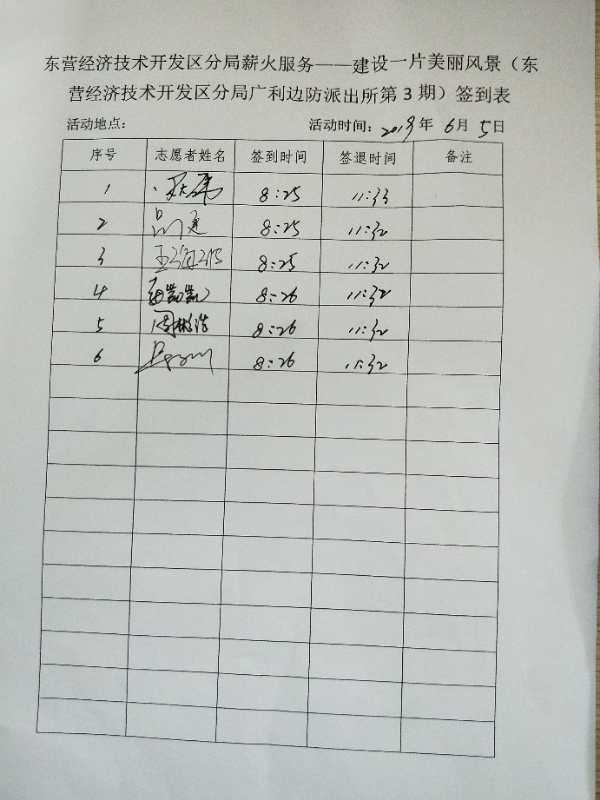 东营经济技术开发区分局薪火服务——建设一片美丽风景（东
营经济技术开发区分局广利边防派出所第3期）签到表
活动地点： 活动时间：2019年6月5日
序号 志愿者姓名 签到时间 签退时间 备注
1 8:25 11:33
2 8:25 11:32
3 8:25 11:32
4 8:26 11:32
5 周彬浩 8:26 11:32
6 8:26 11:32